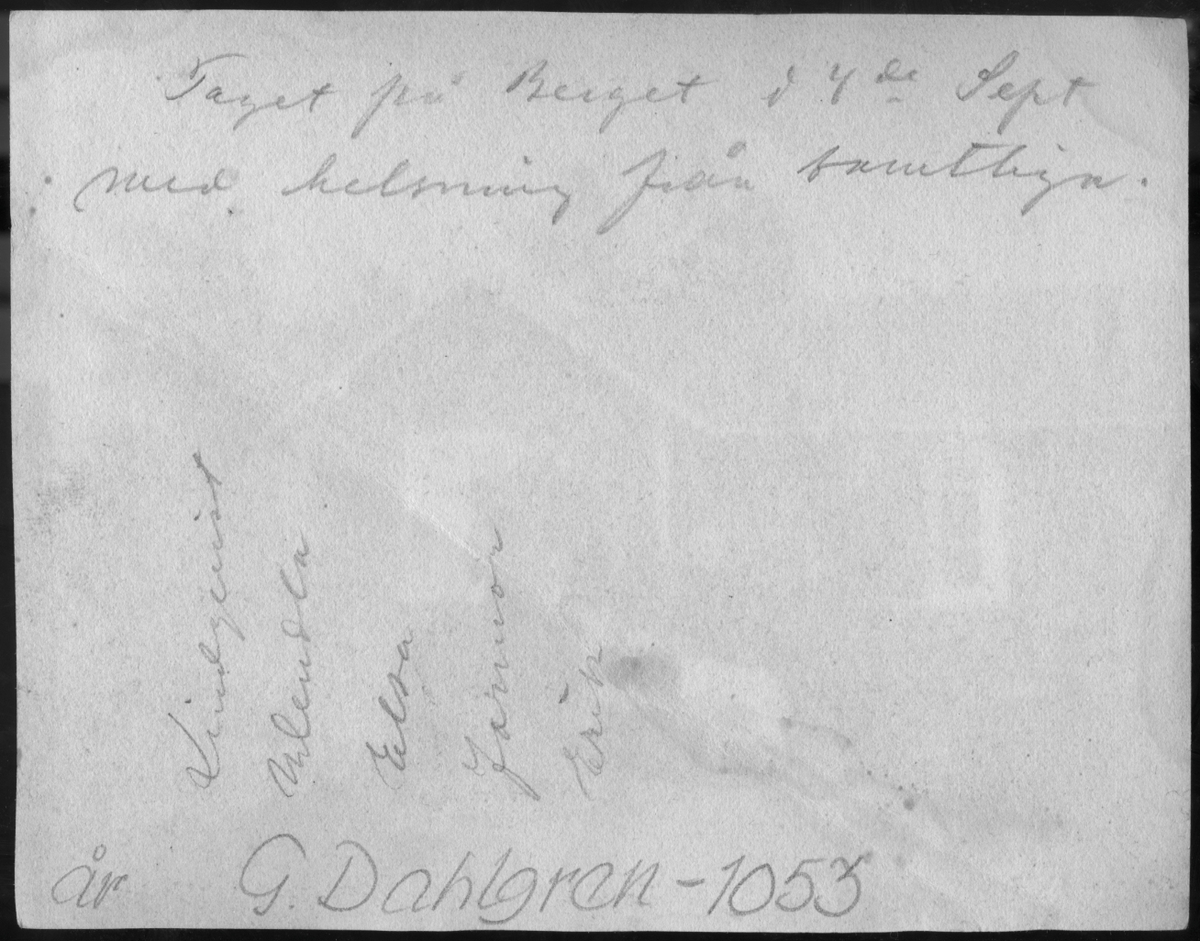 Taget på Berget d 4de Sept
med helsning från samtliga.
Lindqvist
Elsa
Farmor
Erik
år G. Dahlgren - 1053